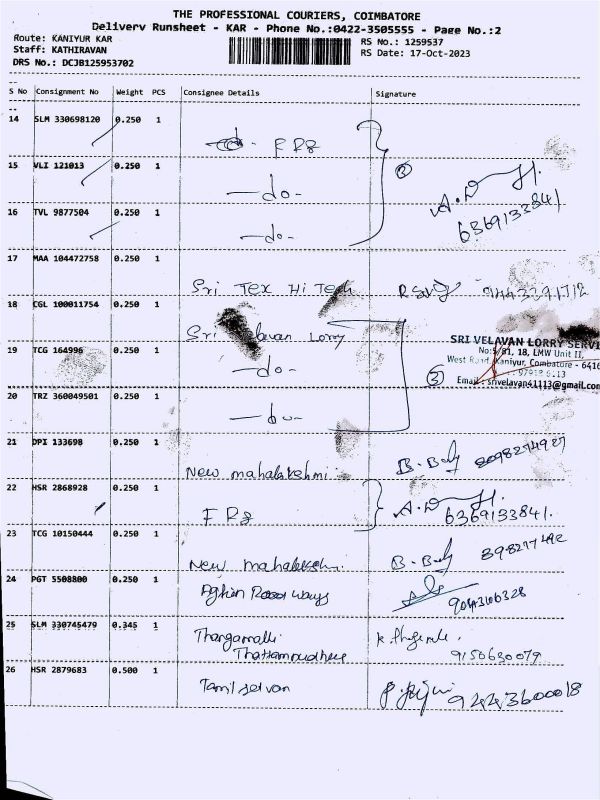 THE PROFESSIONAL COURIERS, COIMBATORE
Delivery Runsheet - KAR - Phone No.:0422-3505555 - Page No.:2
Route: KANIYUR KAR
RS No.: 1259537
Staff: KATHIRAVAN
RS Date: 17-Oct-2023
DRS No.: DCJB125953702
S No Consignment No Weight PCS Consignee Details Signature
14 SLM 330698120 0.250 1
15 VLI 121013 0.250 1 -do-
16 TVL 9877504 0.250 1 -do-
A.D
6369133841
17 MAA 104472758 0.250 1 Sri Tex Hi Tech 9443391712
18 CGL 100011754 0.250 1 Sri Velavan Lorry
19 TCG 164996 0.250 1 -do-
SRI VELAVAN LORRY SERVI
No:5/81, 18, LMW Unit II,
West Road, Kaniyur, Coimbatore - 6416
Email : srivelavan41113@gmail.com
20 TRZ 360049501 0.250 1 -do-
21 DPI 133698 0.250 1 New mahalakshmi 8098274927
22 HSR 2868928 0.250 1 A.D
6369133841.
23 TCG 10150444 0.250 1 New mahalakshmi
24 PGT 5508800 0.250 1
25 SLM 330745479 0.345 1 Thangamalli
9150630079
26 HSR 2879683 0.500 1 Tamil selvan 9443600018